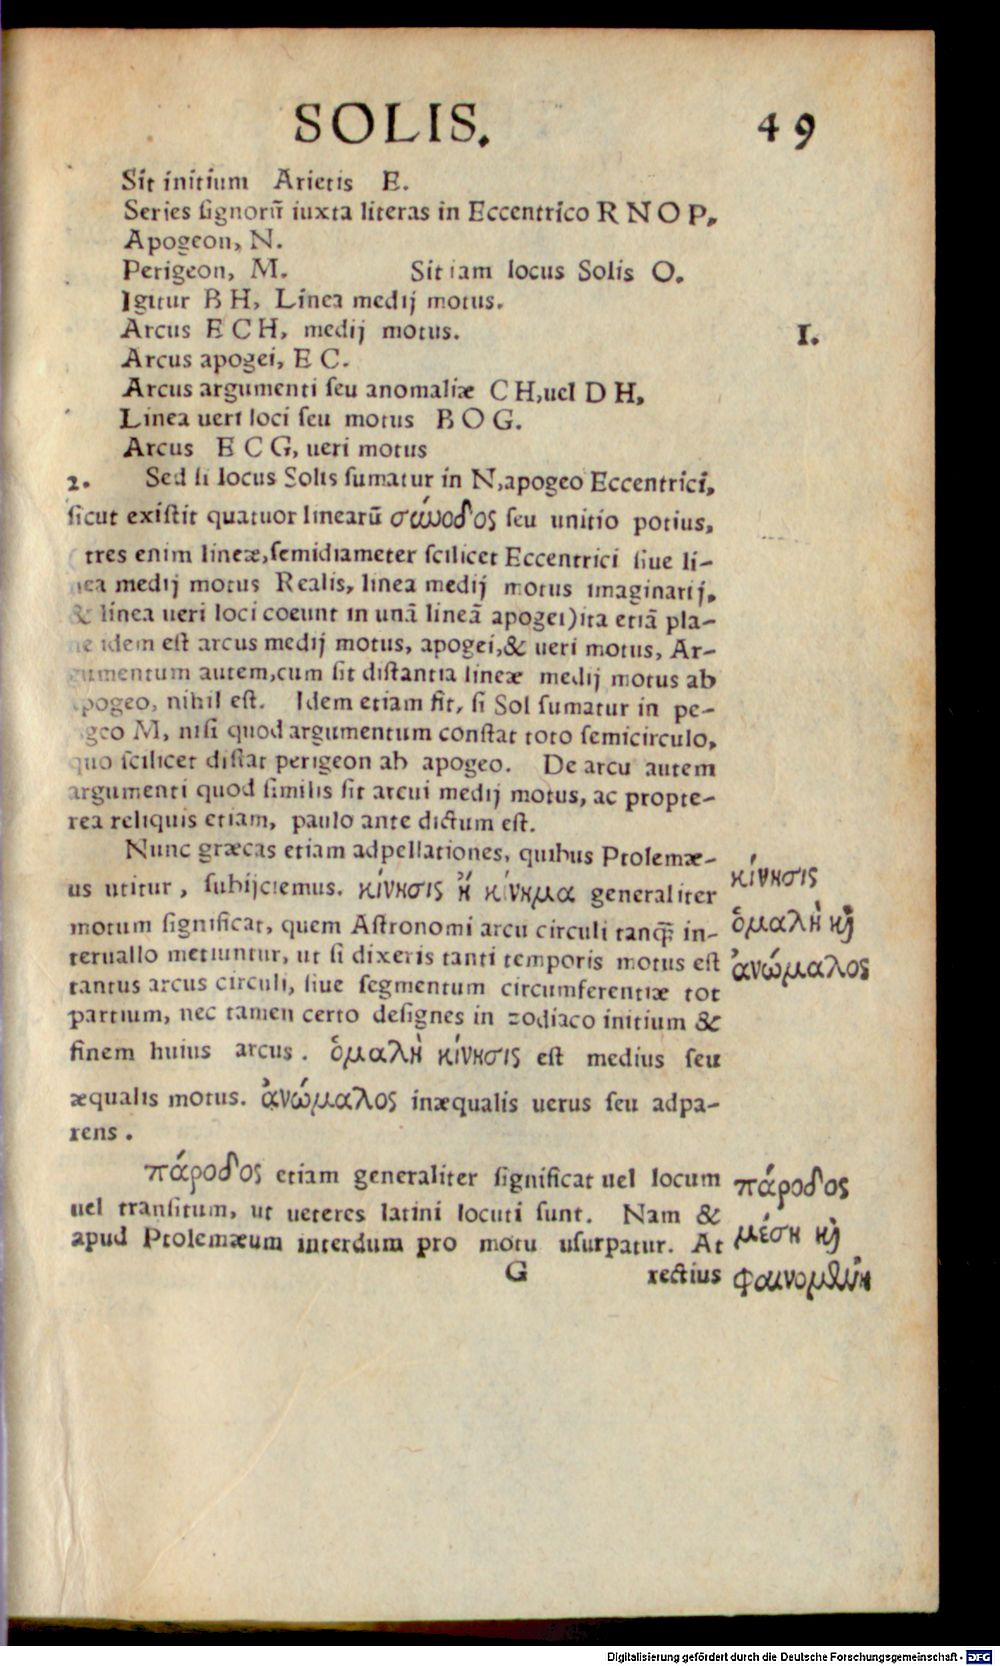 SOLIS. 49
Sit initium Arietis E.
Series signorũ iuxta literas in Eccentrico R N O P,
Apogeon, N.
Perigeon, M. Sit iam locus Solis O.
Igitur B H, Linea medij motus.
Arcus E C H, medij motus. 1.
Arcus apogei, E C.
Arcus argumenti seu anomaliæ C H, uel D H,
Linea ueri loci seu motus B O G.
Arcus E C G, ueri motus
2. Sed si locus Solis sumatur in N, apogeo Eccentrici,
sicut existit quatuor linearũ σύνοδος seu unitio potius,
( tres enim lineæ, semidiameter scilicet Eccentrici siue li-
nea medij motus Realis, linea medij motus imaginarij,
& linea ueri loci coeunt in unã lineã apogei) ita etiã pla-
ne idem est arcus medij motus, apogei, & ueri motus, Ar-
gumentum autem, cum sit distantia lineæ medij motus ab
apogeo, nihil est. Idem etiam fit, si Sol sumatur in pe-
geo M, nisi quod argumentum constat toto semicirculo,
quo scilicet distat perigeon ab apogeo. De arcu autem
argumenti quod similis sit arcui medij motus, ac propte-
rea reliquis etiam, paulo ante dictum est.
Nunc græcas etiam adpellationes, quibus Ptolemæ-
us utitur, subijciemus. κίνησις ἢ κίνημα generaliter κίνησις
motum significat, quem Astronomi arcu circuli tanq̃; in- ὁμαλὴ καὶ
teruallo metiuntur, ut si dixeris tanti temporis motus est ἀνώμαλος
tantus arcus circuli, siue segmentum circumferentiæ tot
partium, nec tamen certo designes in zodiaco initium &
finem huius arcus. ὁμαλὴ κίνησις est medius seu
æqualis motus. ἀνώμαλος inæqualis uerus seu adpa-
rens.
πάροδος etiam generaliter significat uel locum πάροδος
uel transitum, ut ueteres latini locuti sunt. Nam & μέση καὶ
apud Ptolemæum interdum pro motu usurpatur. At φαινομένη
G rectius
Digitalisierung gefördert durch die Deutsche Forschungsgemeinschaft - DFG